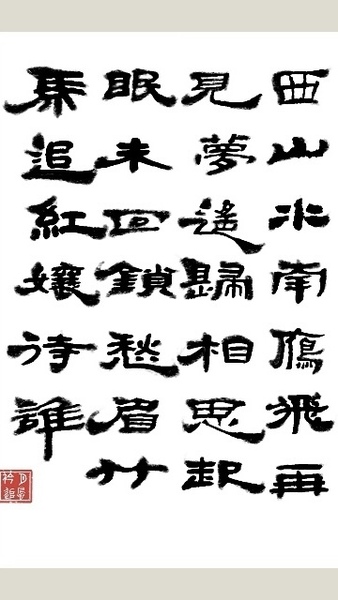 西山水南鴈飛再
見夢遙歸相思起
眠未回鎖愁眉竹
馬追紅孃待誰